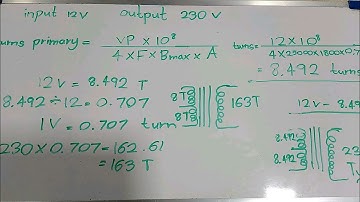 input 12v output 230 v
urns primary = VP × 10⁸
4×F×Bmax×A
turns= 12×10⁸
4×25000×1800×0.7
= 8.492 turns
12v = 8.492 T
8.492 ÷ 12 = 0.707
1V = 0.707 turn
230 × 0.707 = 162.61
= 163 T
8T
8T
163T
12v - 8.49
8.492
8.492
23
T